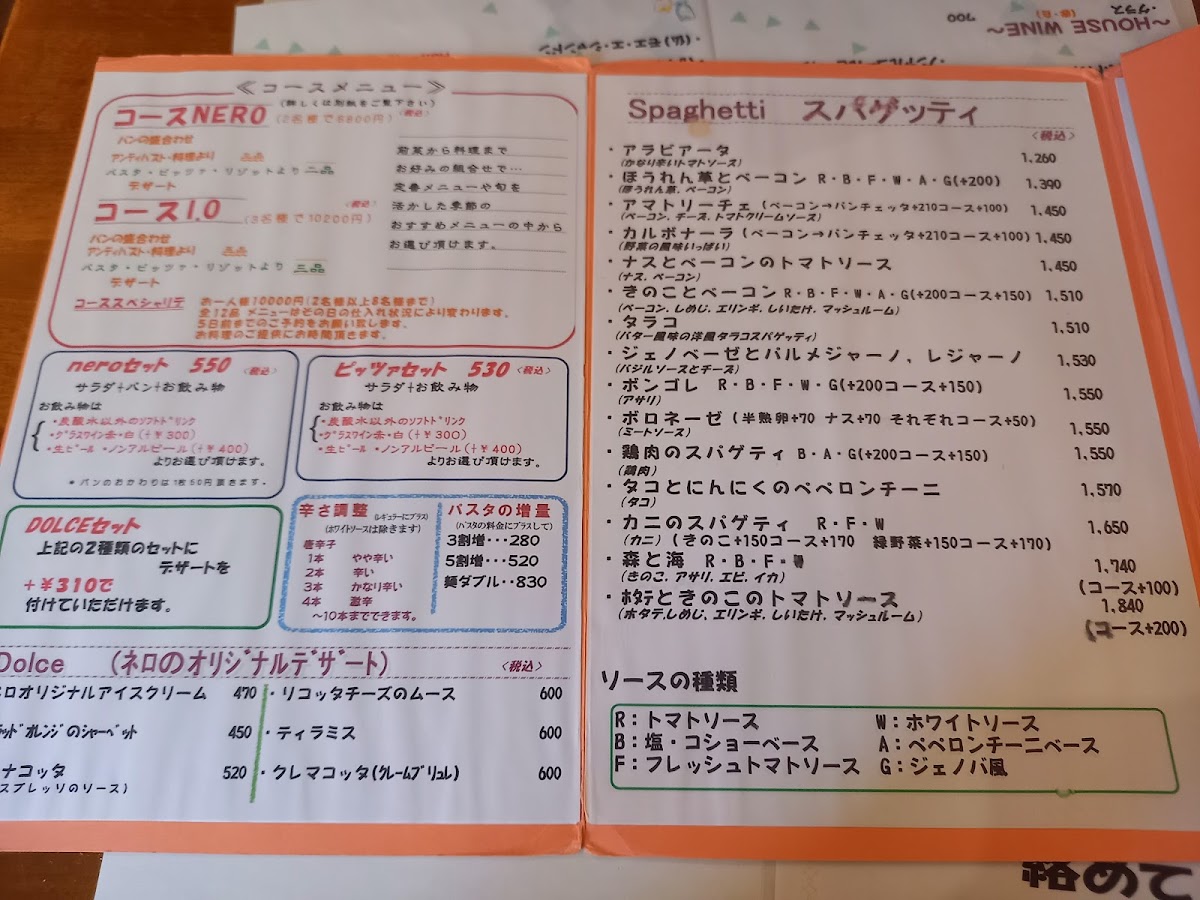 ~HOUSE WINE~
(赤・白)
・グラス
700
(仏)モエ・エ・シャンドン
≪コースメニュー≫
(詳しくは別紙をご覧下さい)
コースNERO (2名様で6800円) <税込>
パンの盛合わせ
アンティパスト・料理より 二品
パスタ・ピッツァ・リゾットより 二品
デザート
コース1.0 (3名様で10200円) <税込>
パンの盛合わせ
アンティパスト・料理より 三品
パスタ・ピッツァ・リゾットより 三品
デザート
前菜から料理まで
お好みの組合せで…
定番メニューや旬を
活かした季節の
おすすめメニューの中から
お選び頂けます。
コーススペシャリテ
お一人様10000円(2名様以上8名様まで)
全12品 メニューはその日の仕入れ状況により変わります。
5日前までのご予約をお願い致します。
お料理のご提供にお時間頂きます。
neroセット 550 <税込>
サラダ+パン+お飲み物
お飲み物は
・炭酸水以外のソフトドリンク
・グラスワイン赤・白(+¥300)
・生ビール ・ノンアルビール(+¥400)
よりお選び頂けます。
*パンのおかわりは1枚50円頂きます。
ピッツァセット 530 <税込>
サラダ+お飲み物
お飲み物は
・炭酸水以外のソフトドリンク
・グラスワイン赤・白(+¥300)
・生ビール ・ノンアルビール(+¥400)
よりお選び頂けます。
DOLCEセット
上記の2種類のセットに
デザートを
+¥310で
付けていただけます。
辛さ調整 (レギュラーにプラス)
(ホワイトソースは除きます)
唐辛子
1本 やや辛い
2本 辛い
3本 かなり辛い
4本 激辛
~10本までできます。
パスタの増量
(パスタの料金にプラスして)
3割増・・・280
5割増・・・520
麺ダブル・・830
Dolce (ネロのオリジナルデザート) <税込>
ロオリジナルアイスクリーム 470
ッドオレンジのシャーベット 450
ナコッタ 520
スプレッソのソース)
・リコッタチーズのムース 600
・ティラミス 600
・クレマコッタ(クレームブリュレ) 600
Spaghetti スパゲッティ
<税込>
・アラビアータ 1,260
(かなり辛いトマトソース)
・ほうれん草とベーコン R・B・F・W・A・G(+200) 1,390
(ほうれん草、ベーコン)
・アマトリーチェ (ベーコン→パンチェッタ+210コース+100) 1,450
(ベーコン、チーズ、トマトクリームソース)
・カルボナーラ (ベーコン→パンチェッタ+210コース+100) 1,450
(野菜の風味いっぱい)
・ナスとベーコンのトマトソース 1,450
(ナス、ベーコン)
・きのことベーコン R・B・F・W・A・G(+200コース+150) 1,510
(ベーコン、しめじ、エリンギ、しいたけ、マッシュルーム)
・タラコ 1,510
(バター風味の洋風タラコスパゲッティ)
・ジェノベーゼとパルメジャーノ、レジャーノ 1,530
(バジルソースとチーズ)
・ボンゴレ R・B・F・W・G(+200コース+150) 1,550
(アサリ)
・ボロネーゼ (半熟卵+70 ナス+70 それぞれコース+50) 1,550
(ミートソース)
・鶏肉のスパゲティ B・A・G(+200コース+150) 1,550
(鶏肉)
・タコとにんにくのペペロンチーニ 1,570
(タコ)
・カニのスパゲティ R・F・W 1,650
(カニ) (きのこ+150コース+170 緑野菜+150コース+170)
・森と海 R・B・F・ 1,740
(きのこ、アサリ、エビ、イカ) (コース+100)
・ホタテときのこのトマトソース 1,840
(ホタテ、しめじ、エリンギ、しいたけ、マッシュルーム) (コース+200)
ソースの種類
R:トマトソース W:ホワイトソース
B:塩・コショーベース A:ペペロンチーニベース
F:フレッシュトマトソース G:ジェノバ風
絡めて